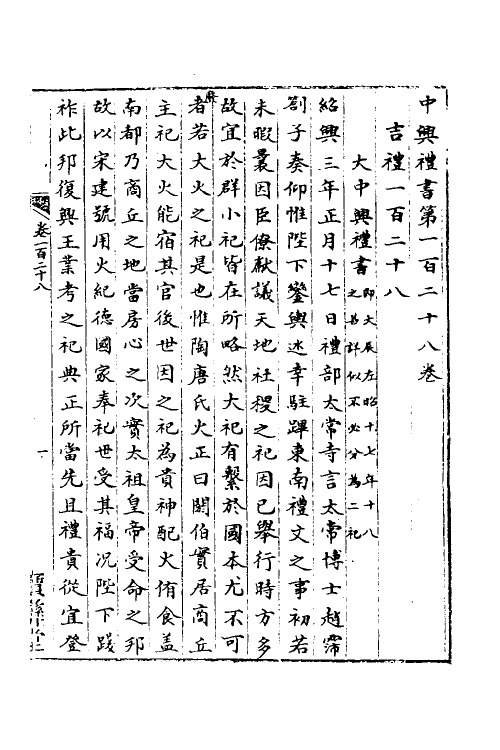 中興禮書第一百二十八卷
吉禮一百二十八
大中興禮書即大辰左昭十七年十八
之名詳似不必分為二祀
紹興三年正月十七日禮部太常寺言太常博士趙霈
劄子奏仰惟陛下鑾輿迷幸駐蹕東南禮文之事初若
未暇曩因臣僚獻議天地社稷之祀因已舉行時方多
故宜於群小祀皆在所略然大祀有繫於國本尤不可
者若大火之祀是也惟陶唐氏火正曰閼伯實居商丘
主祀大火能宿其官後世因之祀為貴神配火侑食蓋
南都乃商丘之地當房心之次實太祖皇帝受命之邦
故以宋建號用火紀德國家奉祀世受其福况陛下踐
祚此邦復興王業考之祀典正所當先且禮貴從宜登
卷一百二十八
一